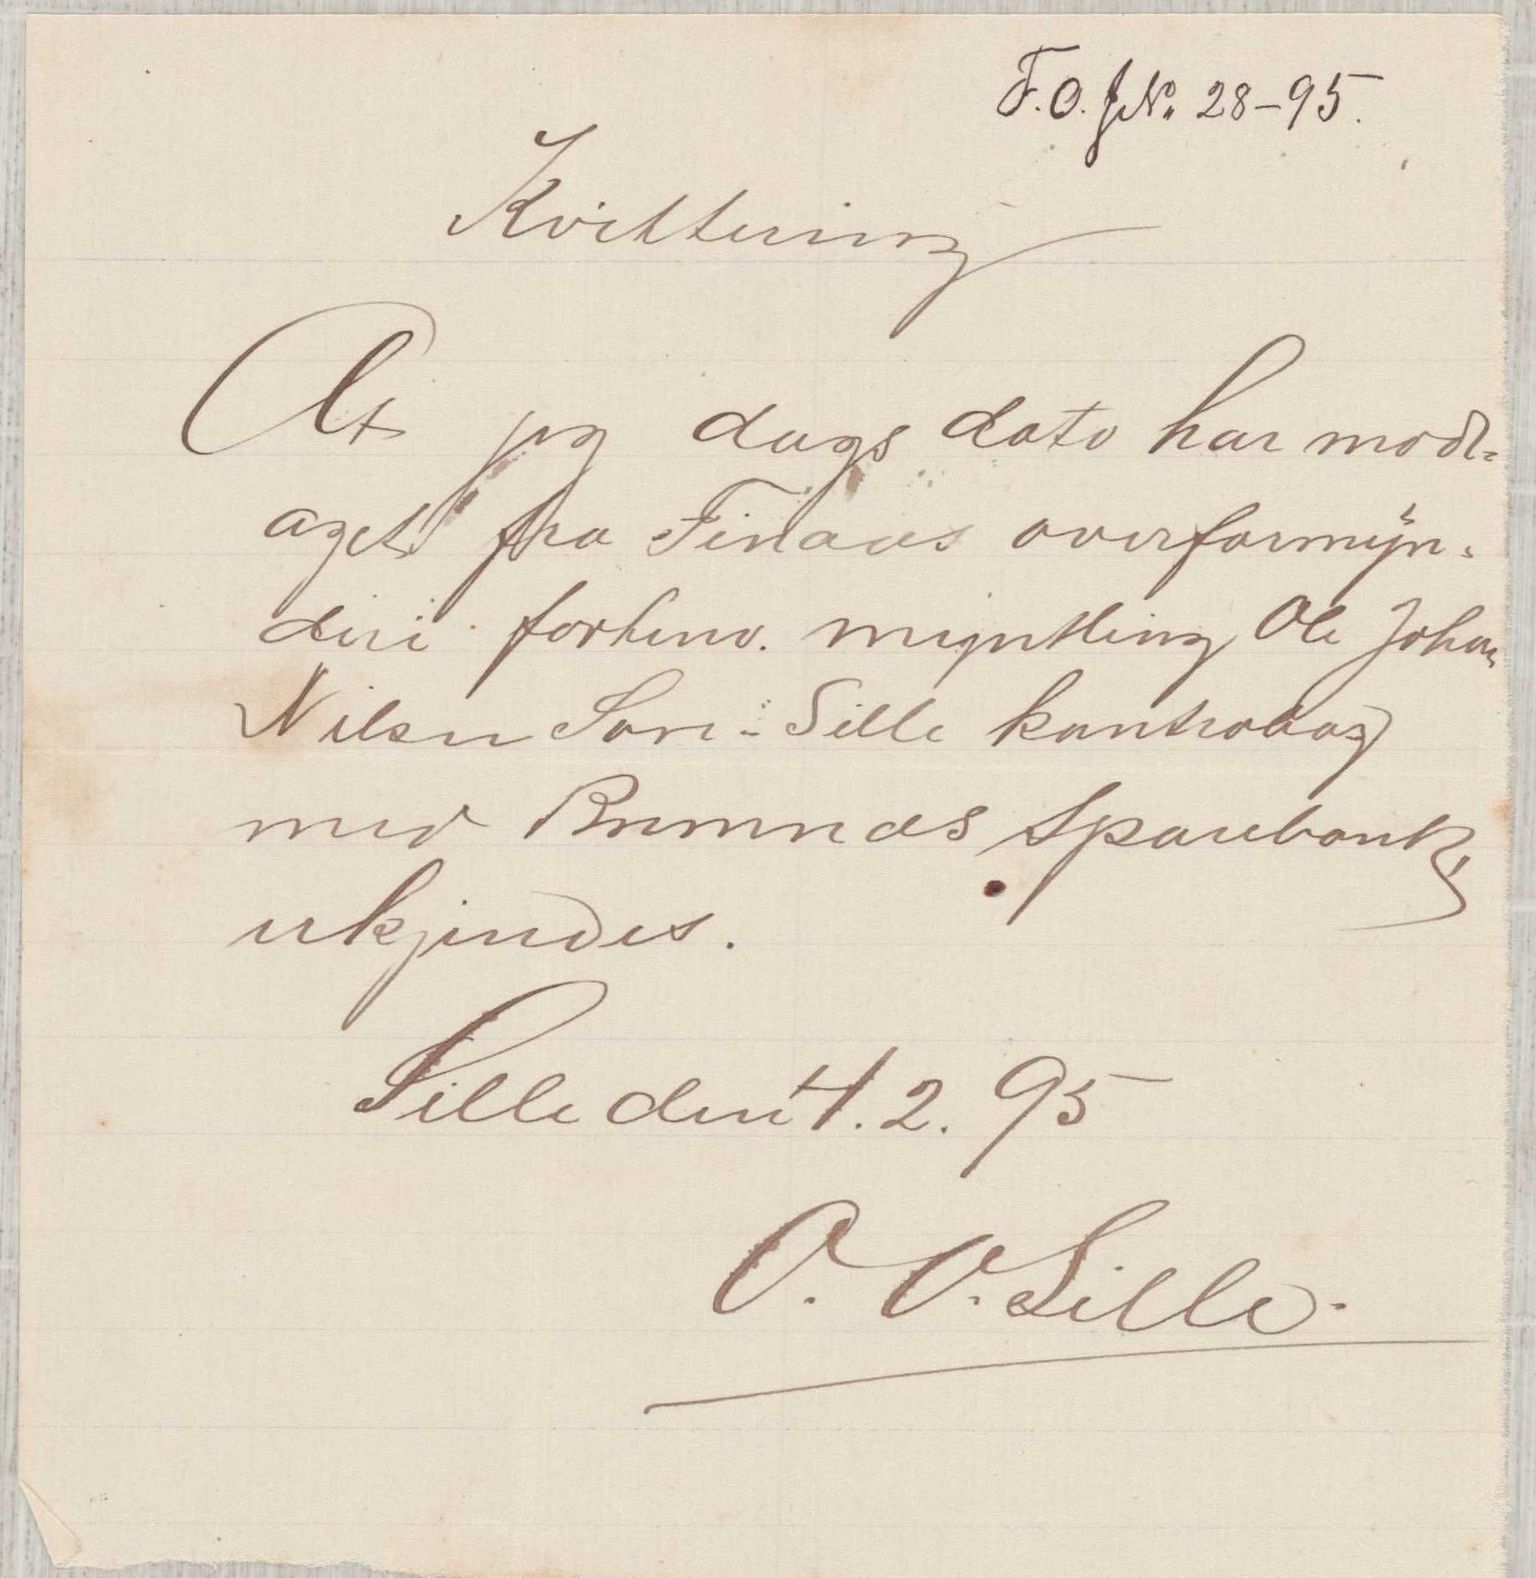 F. O. J No. 28-95.
Kvittering
At jeg dags dato har modt-
aget fra Finaas overformyn-
deri forhenv. myntling Ole Johan
Nilsen Søre-Sille kontrabog
med Bremnæs Sparebank
erkjendes.
Sille den 4. 2. 95
O. O. Sille.